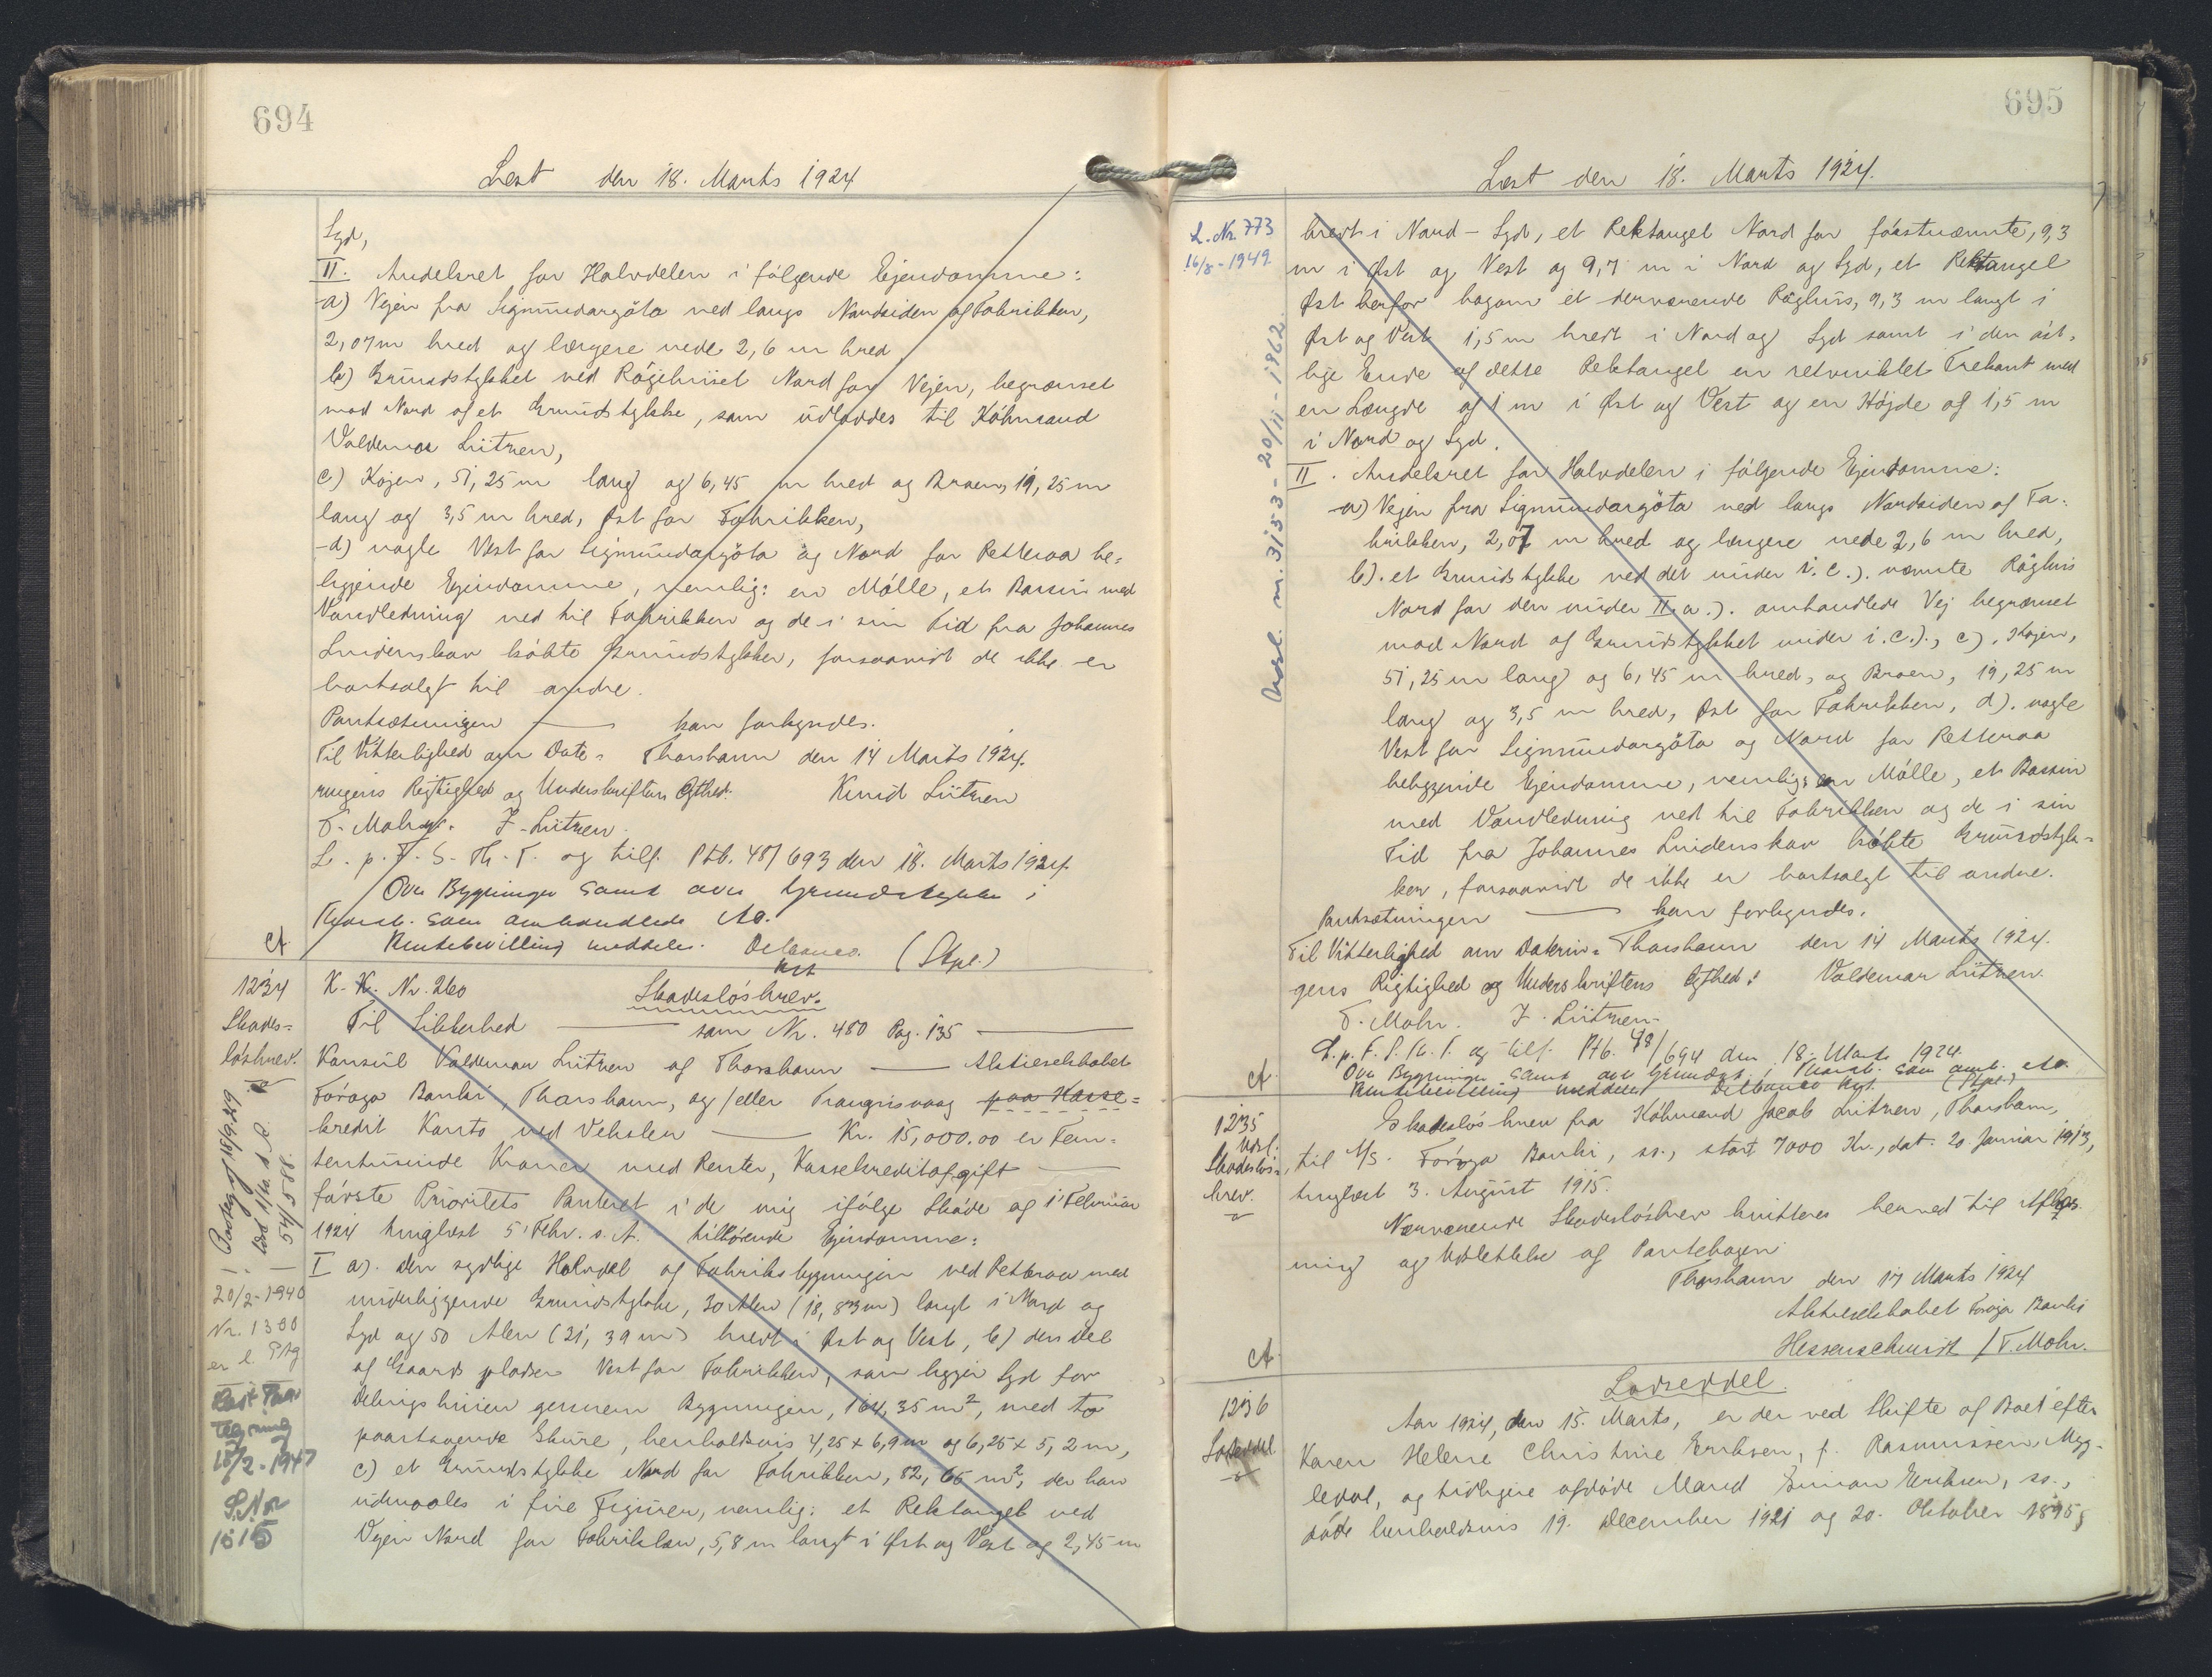 694
Læst den 18. Marts 1924
Syd,
II. Andelsret for Halvdelen i følgende Ejendomme:
a) Vejen fra Sigmundargöta ned langs Nordsiden af Fabrikken,
2,07 m bred og længere nede 2,6 m bred
b) Grundstykket ved Røgehuset Nord for Vejen, begrænset
mod Nord af et Grundstykke, som udlagdes til Købmand
Valdemar Lützen,
c) Kajen, 51,25 m lang og 6,45 m bred og Broen, 19,25 m
lang og 3,5 m bred, Øst for Fabrikken,
d) nogle Vest for Sigmundargöta og Nord for Petteraa be=
liggende Ejendomme, nemlig: en Mølle, et Bassin med
Vandledning ned til Fabrikken og de i sin Tid fra Johannes
Lindenskov købte Grundstykker, forsaavidt de ikke er
bortsolgt til andre.
Pantsætningen — kan forkyndes.
Til Vitterlighed om Date= Thorshavn den 14 Marts 1924.
ringens Rigtighed og Underskriftens Ægthed: Knud Lützen
F. Mohr. J. Lützen.
L. p. F. S. Th. T. og tilf. Ptb. 48/693 den 18. Marts 1924.
Over Bygninger samt over Grundstykke i
Thorsh. som omhandlede
Rentebevilling meddeles. Delbanco. (Stpl.)
Kst
1234
Skades=
løsbrev.
K. K. Nr. 260
Skadesløsbrev.
Til Sikkerhed — som Nr. 480 Pag. 135 —
Konsul Valdemar Lützen af Thorshavn — Aktieselskabet
Føroya Banki, Thorshavn, og/eller Trangisvaag paa Kasse=
kredit Konto ved Veksler — Kr. 15,000.00 er Fem=
tentusinde Kroner med Renter, Kassekreditafgift —
første Prioritets Panteret i de mig ifølge Skøde af 1' Februar
1924 tinglæst 5' Febr. s. A. tilhørende Ejendomme:
I a). den sydlige Halvdel af Fabriksbygningen ved Petteraa med
underliggende Grundstykke, 30 Alen (18,83 m) langt i Nord og
Syd og 50 Alen (21,39 m) bredt i Øst og Vest, b) den Del
af Gaardspladsen Vest for Fabrikken, som ligger Syd for
Delingslinien gennem Bygningen, 164,35 m², med to
paastaaende Skure, henholdsvis 4,25 x 6,9 m og 6,25 x 5,2 m,
c) et Grundstykke Nord for Fabrikken, 82,65 m², der kan
udmaales i fire Figurer, nemlig: et Rektangel ved
Vejen Nord for Fabrikken, 5,8 m langt i Øst og Vest og 2,45 m
20/2-1940
Nr. 1300
18/2-1947
1515
695
Læst den 18. Marts 1924.
L. Nr. 773
16/8-1949
Udsl. nr. 3153-20/11-1962.
bredt i Nord - Syd, et Rektangel Nord for førstnævnte, 9,3
m i Øst og Vest og 9,7 m i Nord og Syd, et Rektangel
Øst herfor bagom et derværende Røghus, 9,3 m langt i
Øst og Vest 1,5 m bredt i Nord og Syd samt i den øst=
lige Ende af dette Rektangel en retvinklet Trekant med
en Længde af 1 m i Øst og Vest og en Højde af 1,5 m
i Nord og Syd.
II. Andelsret for Halvdelen i følgende Ejendomme:
a) Vejen fra Sigmundargöta ned langs Nordsiden af Fa=
brikken, 2,07 m bred og længere nede 2,6 m bred,
b). et Grundstykke ved det under I. c.). nævnte Røghus
Nord for den under II. a.). omhandlede Vej begrænset
mod Nord af Grundstykket under I. c.)., c). Kajen,
51,25 m lang og 6,45 m bred, og Broen, 19,25 m
lang og 3,5 m bred, Øst for Fabrikken, d). nogle
Vest for Sigmundargöta og Nord for Petteraa
beliggende Ejendomme, nemlig: en Mølle, et Bassin
med Vandledning ned til Fabrikken og de i sin
Tid fra Johannes Lindenskov købte Grundstyk=
ker, forsaavidt de ikke er bortsolgt til andre.
Pantsætningen — kan forkyndes.
Til Vitterlighed om Daterin= Thorshavn den 14 Marts 1924.
gens Rigtighed og Underskriftens Ægthed: Valdemar Lützen.
F. Mohr. J. Lützen.
L. p. F. S. Th. T. og tilf. Ptb. 48/694 den 18. Marts 1924.
Over Bygninger samt over Grundst. i Thorsh. som omh.
Rentebevilling meddeles Delbanco Kst. (Stpl.)
1235
Udsl.
Skadesløs=
brev.
Skadesløsbrev fra Købmand Jacob Lützen, Thorshavn,
til A/S. Føroya Banki, ss., stort 7000 Kr., dat. 20 Januar 1913,
tinglæst 3. August 1915.
Nærværende Skadesløsbrev kvitteres herved til Aflys=
ning og Udslettelse af Pantebogen
Thorshavn den 17 Marts 1924
Aktieselskabet Føroya Banki
Hessenschmidt / F. Mohr.
1236
Lodseddel
Lodseddel.
Aar 1924, den 15. Marts, er der ved Skifte af Boet efter
Karen Helene Christine Eriksen, f. Rasmussen, Myg=
ledal, og tidligere afdøde Mand Simon Eriksen, ss.,
døde henholdsvis 19. December 1921 og 20. Oktober 1895,